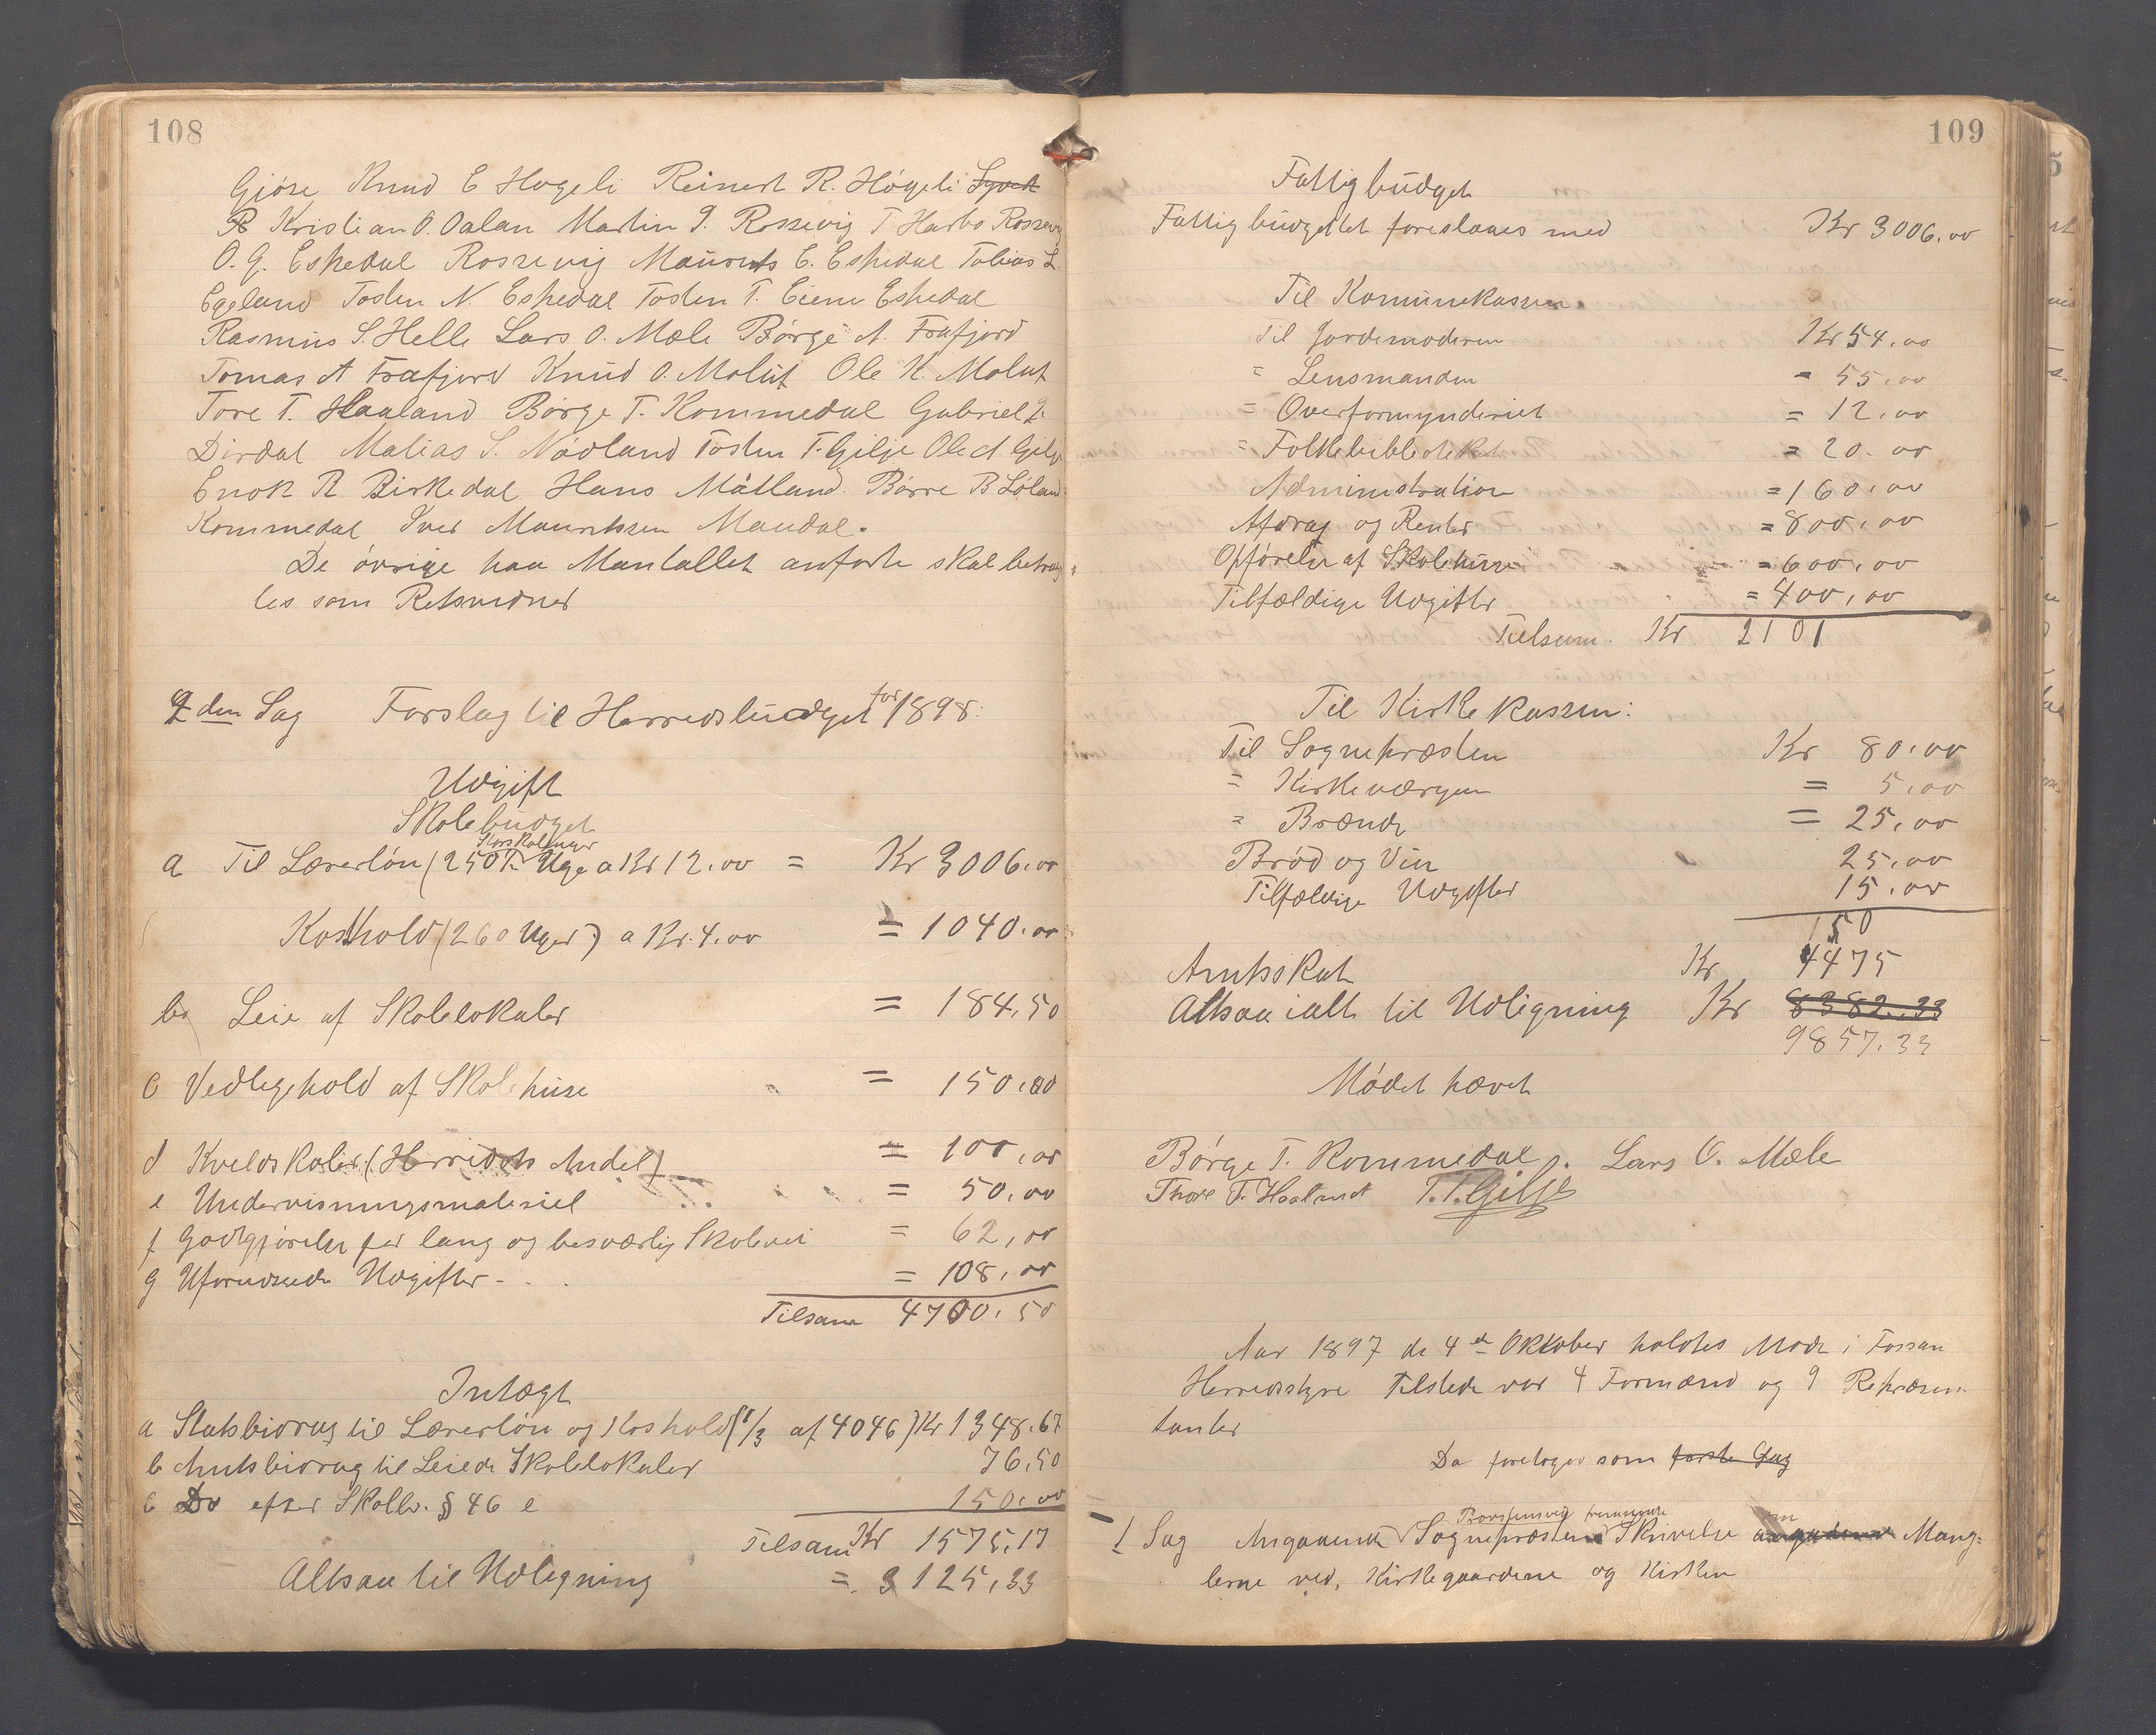 108
Gjöse Knud E Hogeli Reinert R. Högeli
Kristian O. Dalan Martin J. Rossevig T Harbo Rossevig
O. G. Espedal Rossevig Maurits E. Espedal Tobias L.
Egeland Tosten N. Espedal Tosten T. Eiene Espedal
Rasmus S. Helle Lars O. Mæle Börge A. Frafjord
Tomas A Frafjord Knud O. Molut Ole K. Molut
Tore T. Haaland Börge T. Kommedal Gabriel J.
Dirdal Matias S. Nödland Tosten T. Gilje Ole A. Gilje
Enok R. Birkedal Hans Mätland Börre B Löland
Kommedal Iver Mauritsen Maudal.
De övrige paa Mantallet anförte skal betrag
tes som
2 den Sag Forslag til Herredsbudget for 1898:
Udgift
Skolebudget
a Til Lærerlön (250½ Uge a Kr 12.00 = Kr 3006.00
Kosthold (260 Uger) a Kr. 4.00 = 1040.00
b Leie af Skolelokaler = 184,50
c Vedlegehold af Skolehuse = 150,00
d Kveldskoler (Herredets Andel) = 100,00
e Undervisningsmateriel = 50,00
f Godtgjörelse for lang og besværlig Skolevei = 62,00
g Uforudseede Udgifter - . . = 108,00
Tilsam 4700,50
Intægt
a Statsbidrag til Lærerlön og Kosthold (1/3 af 4046) Kr 1348.67
b Amtsbidrag til Leiede Skolelokaler 76,50
c Do efter Skollv. § 46 e 150.00
Tilsam Kr 1575,17
Altsaa til Udligning = 3125,33
109
Fattigbudget
Fattigbudgettet foreslaaes med Kr 3006.00
Til Komunekassen.
Til Jordemoderen Kr 54.00
= Lensmanden = 55.00
= Overformynderiet = 12.00
= Folkebibliotekét = 20.00
Administration = 160.00
Afdrag og Renter = 800,00
Opförelse af Skolehuse = 600,00
Tilfældige Udgifter = 400,00
Tilsam. Kr 2101
Til Kirkekassen:
Til Sognepræsten Kr 80.00
= Kirkeværgen = 5,00
= Brænde = 25,00
Bröd og Vin 25,00
Tilfældige Udgifter 15,00
150
Amtsskat Kr 1475
Altsaa ialt til Udligning Kr 8382.33
9857.33
Mödet hævet
Börge T. Kommedal. Lars O. Mæle
Thore T. Haaland T. T. Gilje
Aar 1897 de 4de Oktober holdtes Möde i Fossan
Herredsstyre Tilstede var 4 Formænd og 9 Repræsen-
tanter
Da foretoges som förste Sag
1 Sag Angaaende Sognepræstens Skrivelse om Mang-
lerne ved Kirkegaardene og Kirken